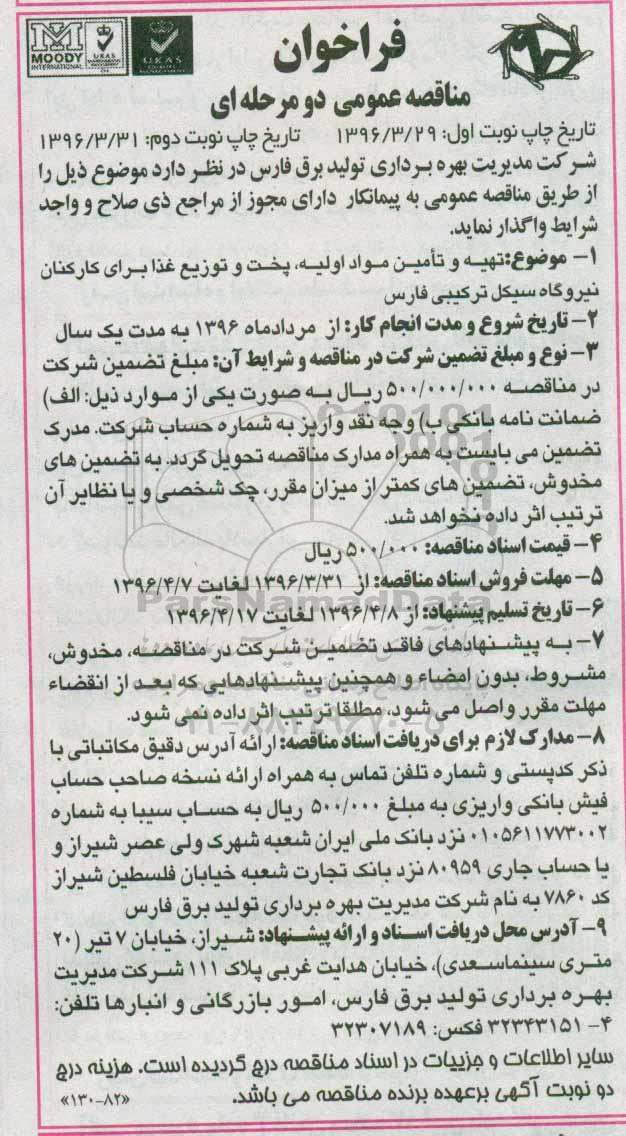 MOODY
INTERNATIONAL
UKAS
UKAS
فراخوان
مناقصه عمومی دو مرحله ای
تاریخ چاپ نوبت اول: ۱۳۹۶/۳/۲۹ تاریخ چاپ نوبت دوم: ۱۳۹۶/۳/۳۱
شرکت مدیریت بهره برداری تولید برق فارس در نظر دارد موضوع ذیل را
از طریق مناقصه عمومی به پیمانکار دارای مجوز از مراجع ذی صلاح و واجد
شرایط واگذار نماید.
۱- موضوع: تهیه و تأمین مواد اولیه، پخت و توزیع غذا برای کارکنان
نیروگاه سیکل ترکیبی فارس
۲- تاریخ شروع و مدت انجام کار: از مردادماه ۱۳۹۶ به مدت یک سال
۳- نوع و مبلغ تضمین شرکت در مناقصه و شرایط آن: مبلغ تضمین شرکت
در مناقصه ۵۰۰/۰۰۰/۰۰۰ ریال به صورت یکی از موارد ذیل: الف)
ضمانت نامه بانکی ب) وجه نقد واریز به شماره حساب شرکت. مدرک
تضمین می بایست به همراه مدارک مناقصه تحویل گردد. به تضمین های
مخدوش، تضمین های کمتر از میزان مقرر، چک شخصی و یا نظایر آن
ترتیب اثر داده نخواهد شد.
۴- قیمت اسناد مناقصه: ۵۰۰/۰۰۰ ریال
۵- مهلت فروش اسناد مناقصه: از ۱۳۹۶/۳/۳۱ لغایت ۱۳۹۶/۴/۷
۶- تاریخ تسلیم پیشنهاد: از ۱۳۹۶/۴/۸ لغایت ۱۳۹۶/۴/۱۷
ParsNamadData
۷- به پیشنهادهای فاقد تضمین شرکت در مناقصه، مخدوش،
مشروط، بدون امضاء و همچنین پیشنهادهایی که بعد از انقضاء
مهلت مقرر واصل می شود، مطلقا ترتیب اثر داده نمی شود.
۸- مدارک لازم برای دریافت اسناد مناقصه: ارائه آدرس دقیق مکاتباتی با
ذکر کدپستی و شماره تلفن تماس به همراه ارائه نسخه صاحب حساب
فیش بانکی واریزی به مبلغ ۵۰۰/۰۰۰ ریال به حساب سیبا به شماره
۰۱۰۵۶۱۱۷۷۳۰۰۲ نزد بانک ملی ایران شعبه شهرک ولی عصر شیراز و
یا حساب جاری ۸۰۹۵۹ نزد بانک تجارت شعبه خیابان فلسطین شیراز
کد ۷۸۶۰ به نام شرکت مدیریت بهره برداری تولید برق فارس
۹- آدرس محل دریافت اسناد و ارائه پیشنهاد: شیراز، خیابان ۷ تیر (۲۰
متری سینماسعدی)، خیابان هدایت غربی پلاک ۱۱۱ شرکت مدیریت
بهره برداری تولید برق فارس، امور بازرگانی و انبارها تلفن:
۴- ۳۲۳۴۳۱۵۱ فکس: ۳۲۳۰۷۱۸۹
سایر اطلاعات و جزییات در اسناد مناقصه درج گردیده است. هزینه درج
دو نوبت آگهی برعهده برنده مناقصه می باشد. «۱۳۰-۸۲»